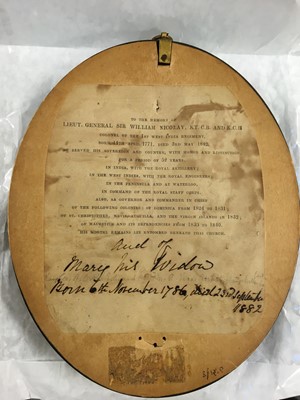 TO THE MEMORY OF
LIEUT. GENERAL SIR WILLIAM NICOLAY, KT. C.B. AND K.C.H
COLONEL OF THE 1ST WEST INDIA REGIMENT,
BORN APRIL, 1771, DIED 3RD MAY 1842,
HE SERVED HIS SOVEREIGN AND COUNTRY, WITH HONOR AND DISTINCTION
FOR A PERIOD OF YEARS,
IN INDIA, WITH THE ROYAL ARTILLERY,
IN THE WEST INDIES, WITH THE ROYAL ENGINEERS,
IN THE PENINSULA AND AT WATERLOO,
IN COMMAND OF THE ROYAL STAFF CORPS,
ALSO, AS GOVERNOR AND COMMANDER IN CHIEF
OF THE FOLLOWING COLONIES; OF DOMINICA FROM 1824 TO 1831;
OF ST. CHRISTOPHER, AND THE VIRGIN ISLANDS IN 1832
OF MAURITIUS AND ITS DEPENDENCIES FROM 1833 TO 1840.
HIS MORTAL REMAINS ARE ENTOMBED BENEATH THIS CHURCH.
And of
Mary his Widow
Born 6th November 1786, Died 23rd September
1882